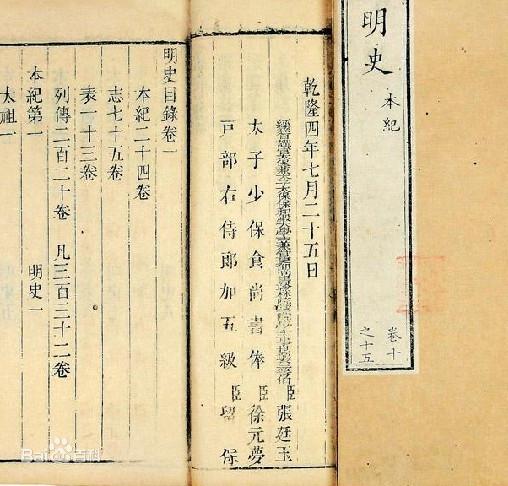 明史
本紀
卷十
之十五
乾隆四年七月二十五日
臣張廷玉
太子少保食尚書俸臣徐元夢
戶部右侍郎加五級臣留保
明史目錄卷一
本紀二十四卷
志七十五卷
表一十三卷
列傳二百二十卷 凡三百三十二卷
本紀第一 明史一
太祖一
Bai百科